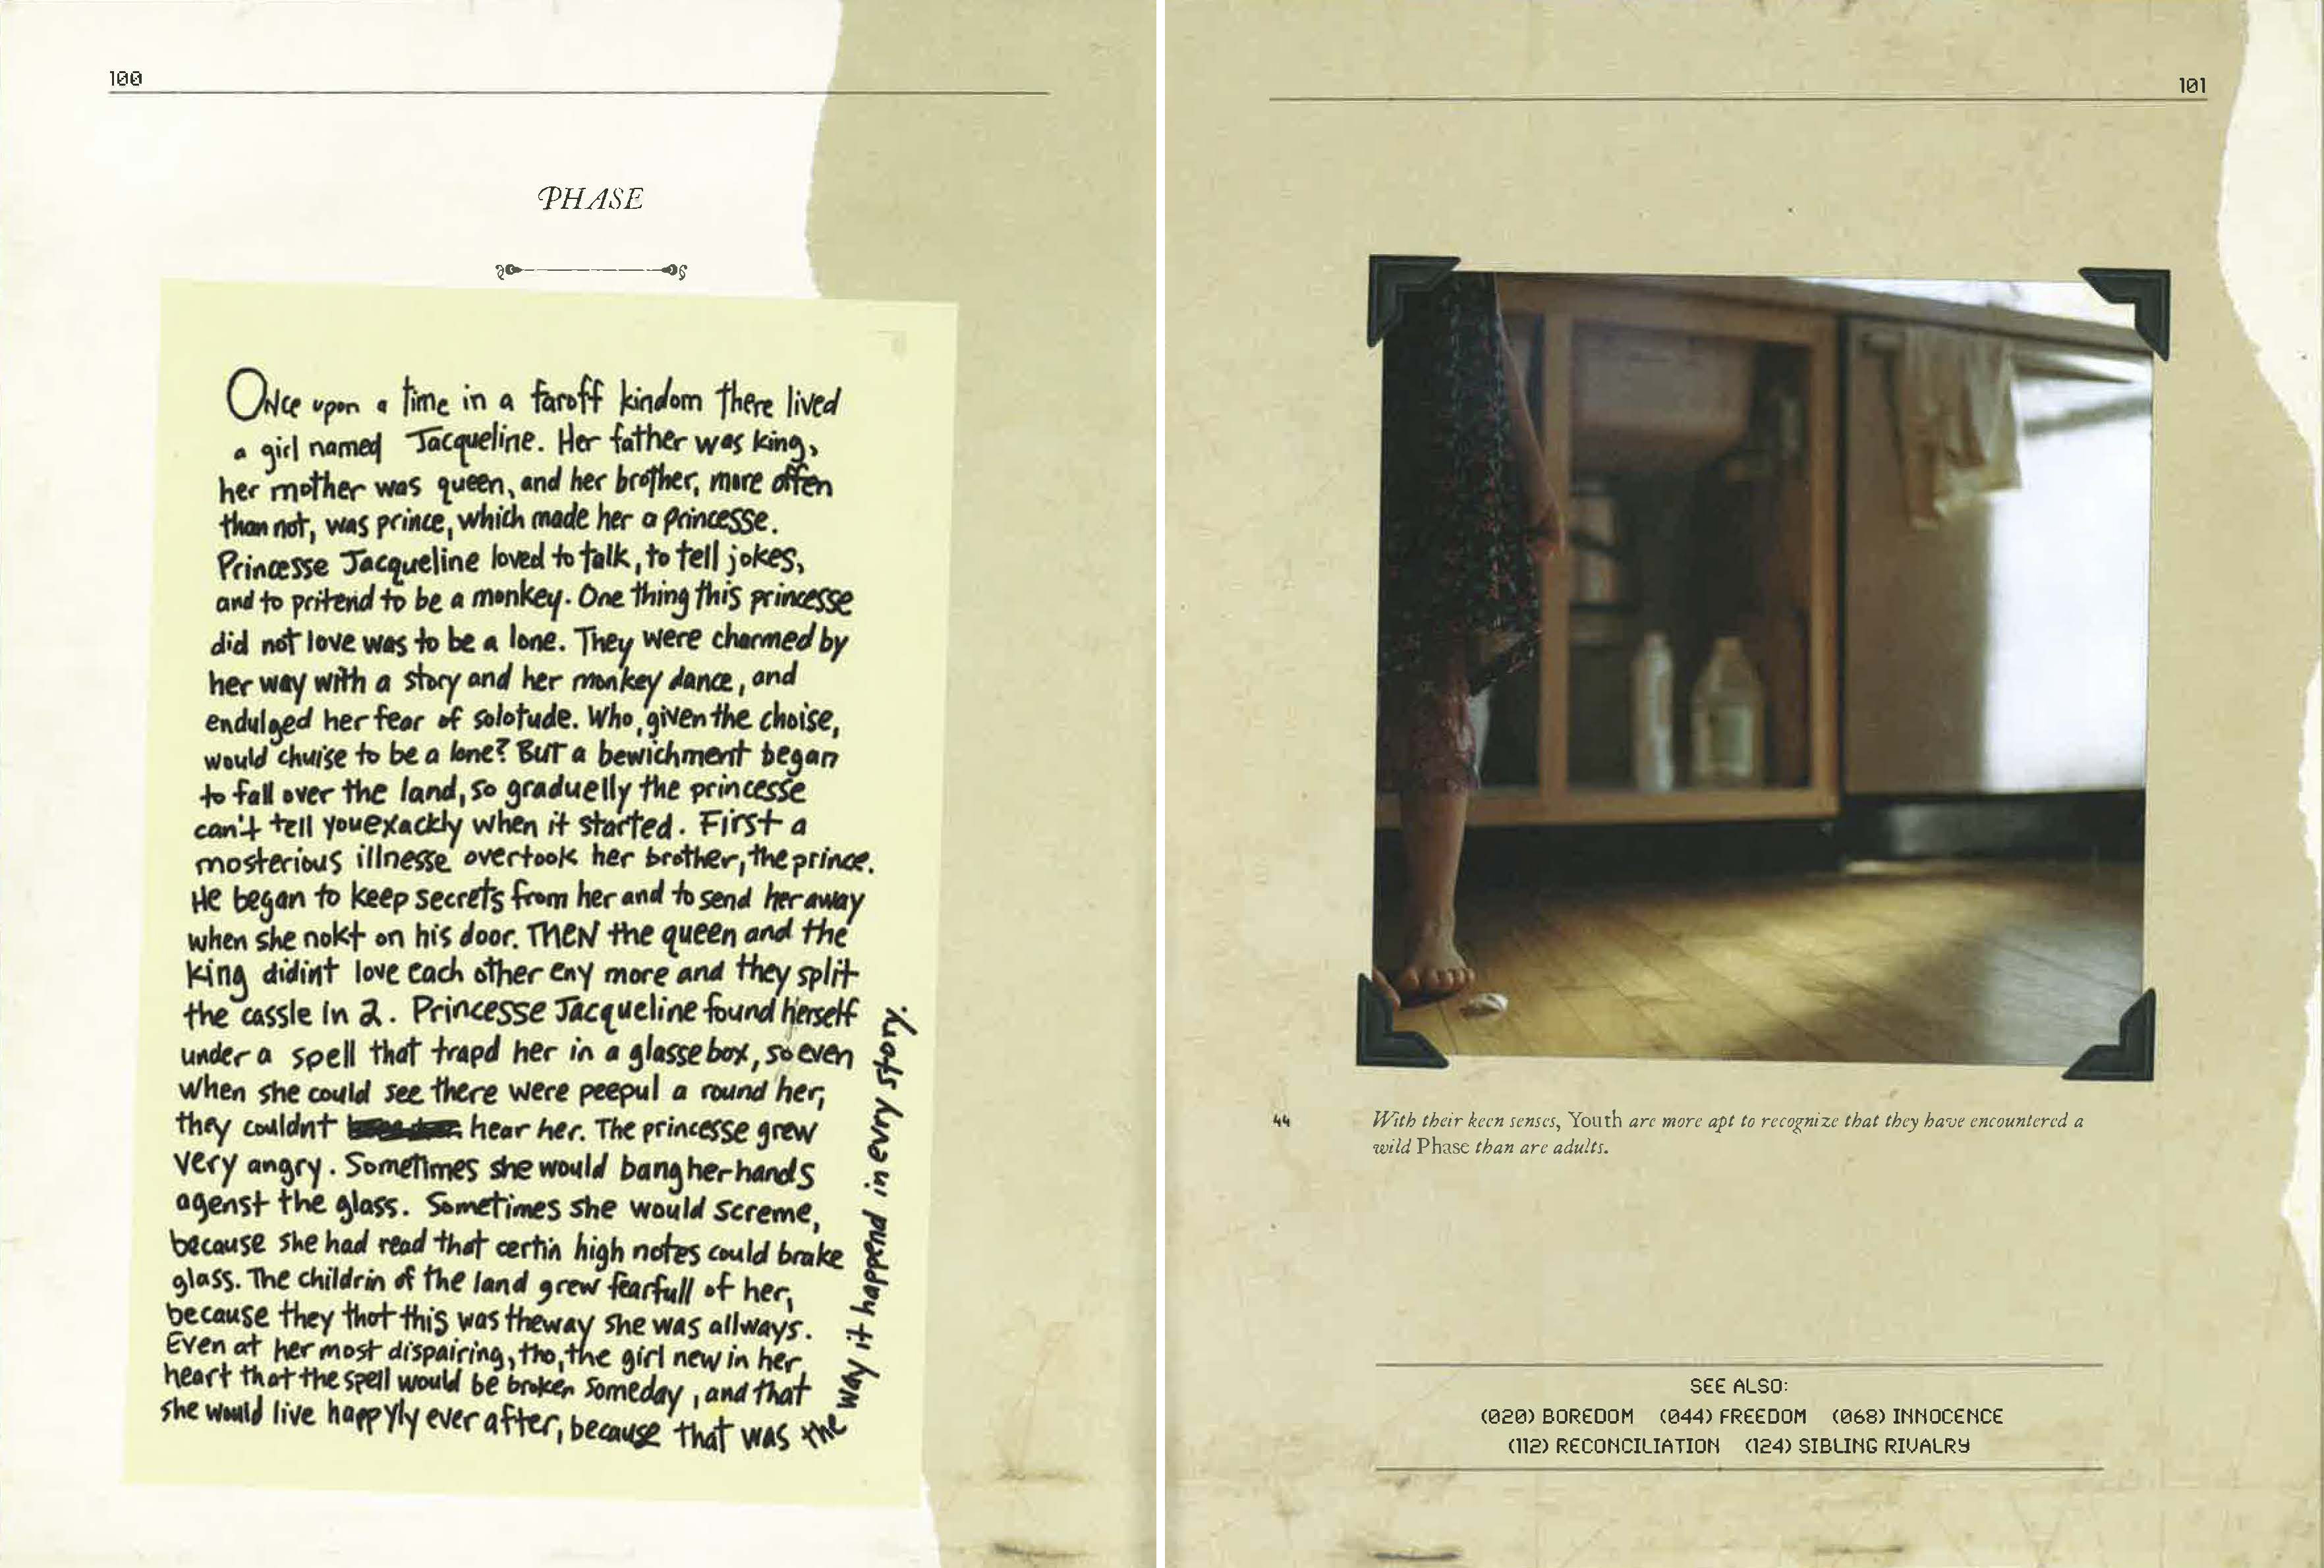 100
PHASE
Once upon a time in a faroff kindom there lived
a girl named Jacqueline. Her father was king,
her mother was queen, and her brother, more often
than not, was prince, which made her a princesse.
Princesse Jacqueline loved to talk, to tell jokes,
and to pritend to be a monkey. One thing this princesse
did not love was to be a lone. They were charmed by
her way with a story and her monkey dance, and
endulged her fear of solotude. Who, given the choise,
would chuise to be a lone? But a bewichment began
to fall over the land, so graduelly the princesse
can't tell you exackly when it started. First a
mosterious illnesse overtook her brother, the prince.
He began to keep secrets from her and to send her away
when she nokt on his door. THEN the queen and the
king didint love each other eny more and they split
the cassle in 2. Princesse Jacqueline found herself
under a spell that trapd her in a glasse box, so even
when she could see there were peepul a round her,
they couldnt hear her. The princesse grew
very angry. Sometimes she would bang her hands
agenst the glass. Sometimes she would screme,
because she had read that certin high notes could brake
glass. The childrin of the land grew fearfull of her,
because they thot this was the way she was allways.
Even at her most dispairing, tho, the girl new in her
heart that the spell would be broken someday, and that
she would live happyly ever after, because that was the way it happend in evry story.
101
44
With their keen senses, Youth are more apt to recognize that they have encountered a
wild Phase than are adults.
SEE ALSO:
(020) BOREDOM (044) FREEDOM (068) INNOCENCE
(112) RECONCILIATION (124) SIBLING RIVALRY